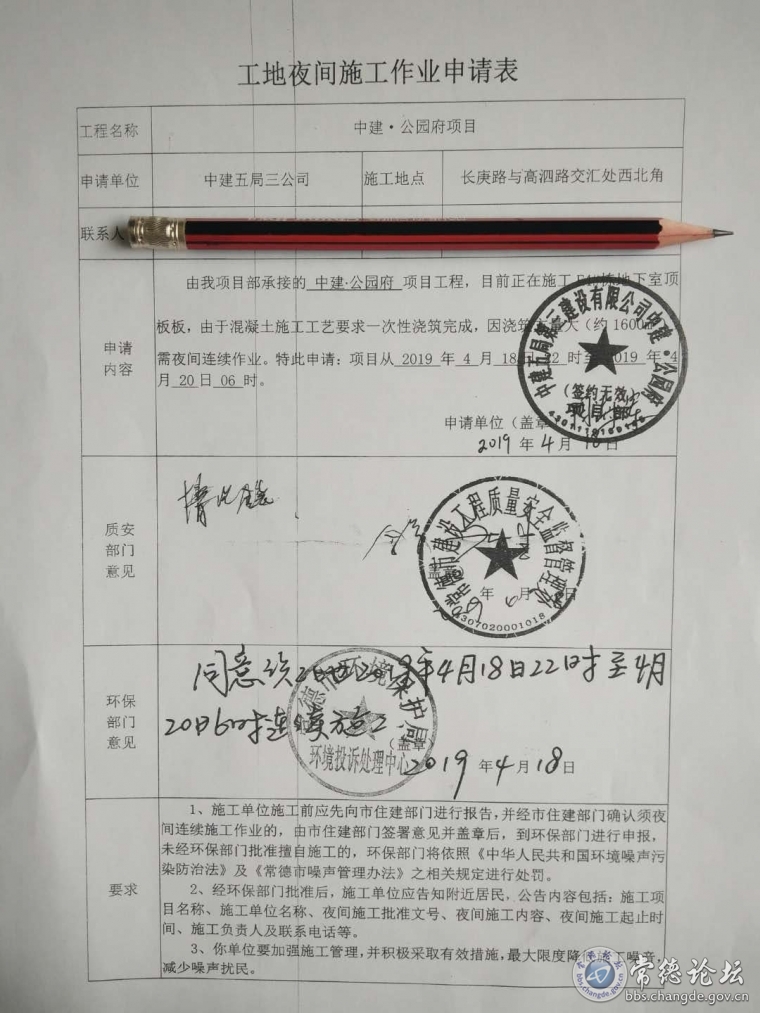 工地夜间施工作业申请表
工程名称 中建·公园府项目
申请单位 中建五局三公司 施工地点 长庚路与高泗路交汇处西北角
联系人
申请内容
由我项目部承接的 中建·公园府 项目工程，目前正在施工 栋地下室顶
板板，由于混凝土施工工艺要求一次性浇筑完成，因浇筑 量大（约1600
需夜间连续作业。特此申请：项目从 2019 年 4 月 18 日 22 时至 2019 年 4
月 20 日 06 时。
中建五局第三建设有限公司中建·公园府
（签约无效）
项目部
申请单位（盖章
2019 年 4 月 18 日
质安部门意见
情况属实
常德市建设工程质量安全监督管理处
4307020001018
盖章
年 月 日
环保部门意见
同意 2019年4月18日22时至4月
20日6时连续施工
常德市环境保护局
环境投诉处理中心
（盖章）
2019 年 4 月 18 日
要求
1、施工单位施工前应先向市住建部门进行报告，并经市住建部门确认须夜
间连续施工作业的，由市住建部门签署意见并盖章后，到环保部门进行申报，
未经环保部门批准擅自施工的，环保部门将依照《中华人民共和国环境噪声污
染防治法》及《常德市噪声管理办法》之相关规定进行处罚。
2、经环保部门批准后，施工单位应告知附近居民，公告内容包括：施工项
目名称、施工单位名称、夜间施工批准文号、夜间施工内容、夜间施工起止时
间、施工负责人及联系电话等。
3、你单位要加强施工管理，并积极采取有效措施，最大限度降低施工噪音，
减少噪声扰民。
常德论坛
bbs.changde.gov.cn